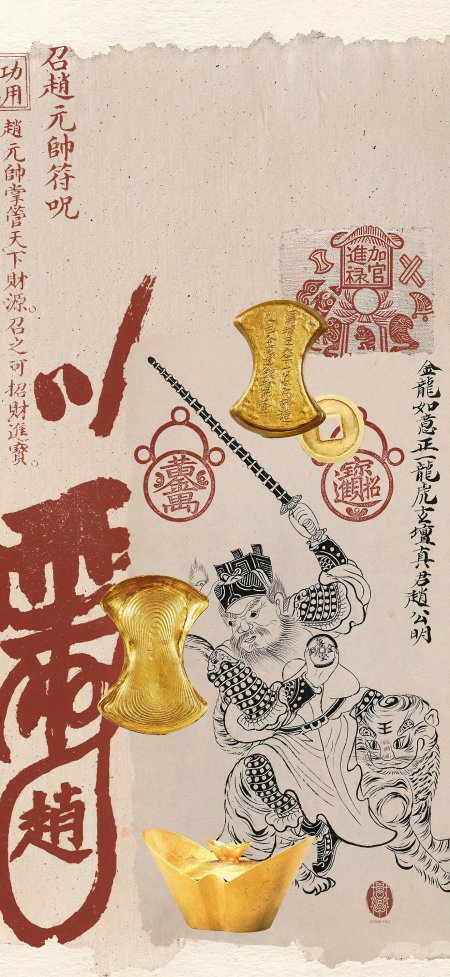 召趙元帥符呪
功用
趙元帥掌管天下財源。召之可招財進寶。
加官
進祿
招財進寶
金龍如意正一龍虎玄壇真君趙公明
趙
王